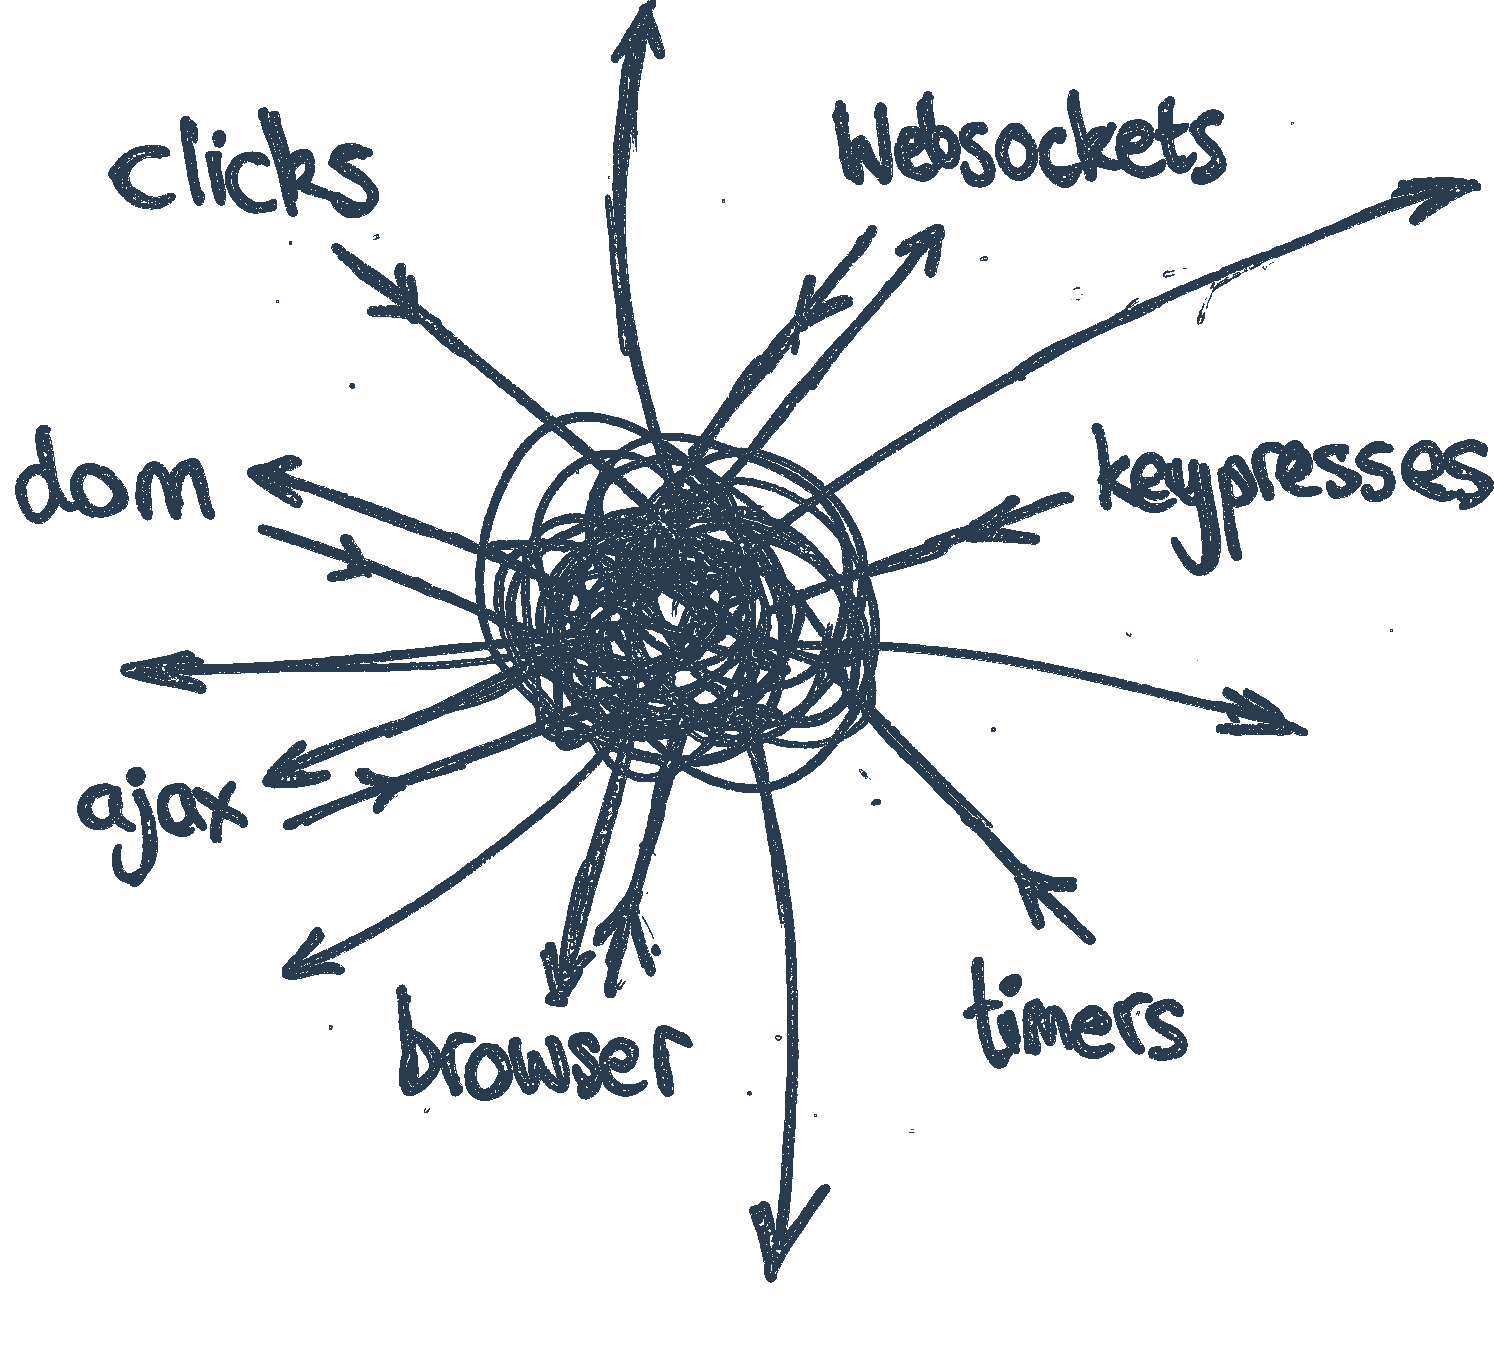 clicks
Websockets
dom
keypresses
ajax
browser
timers